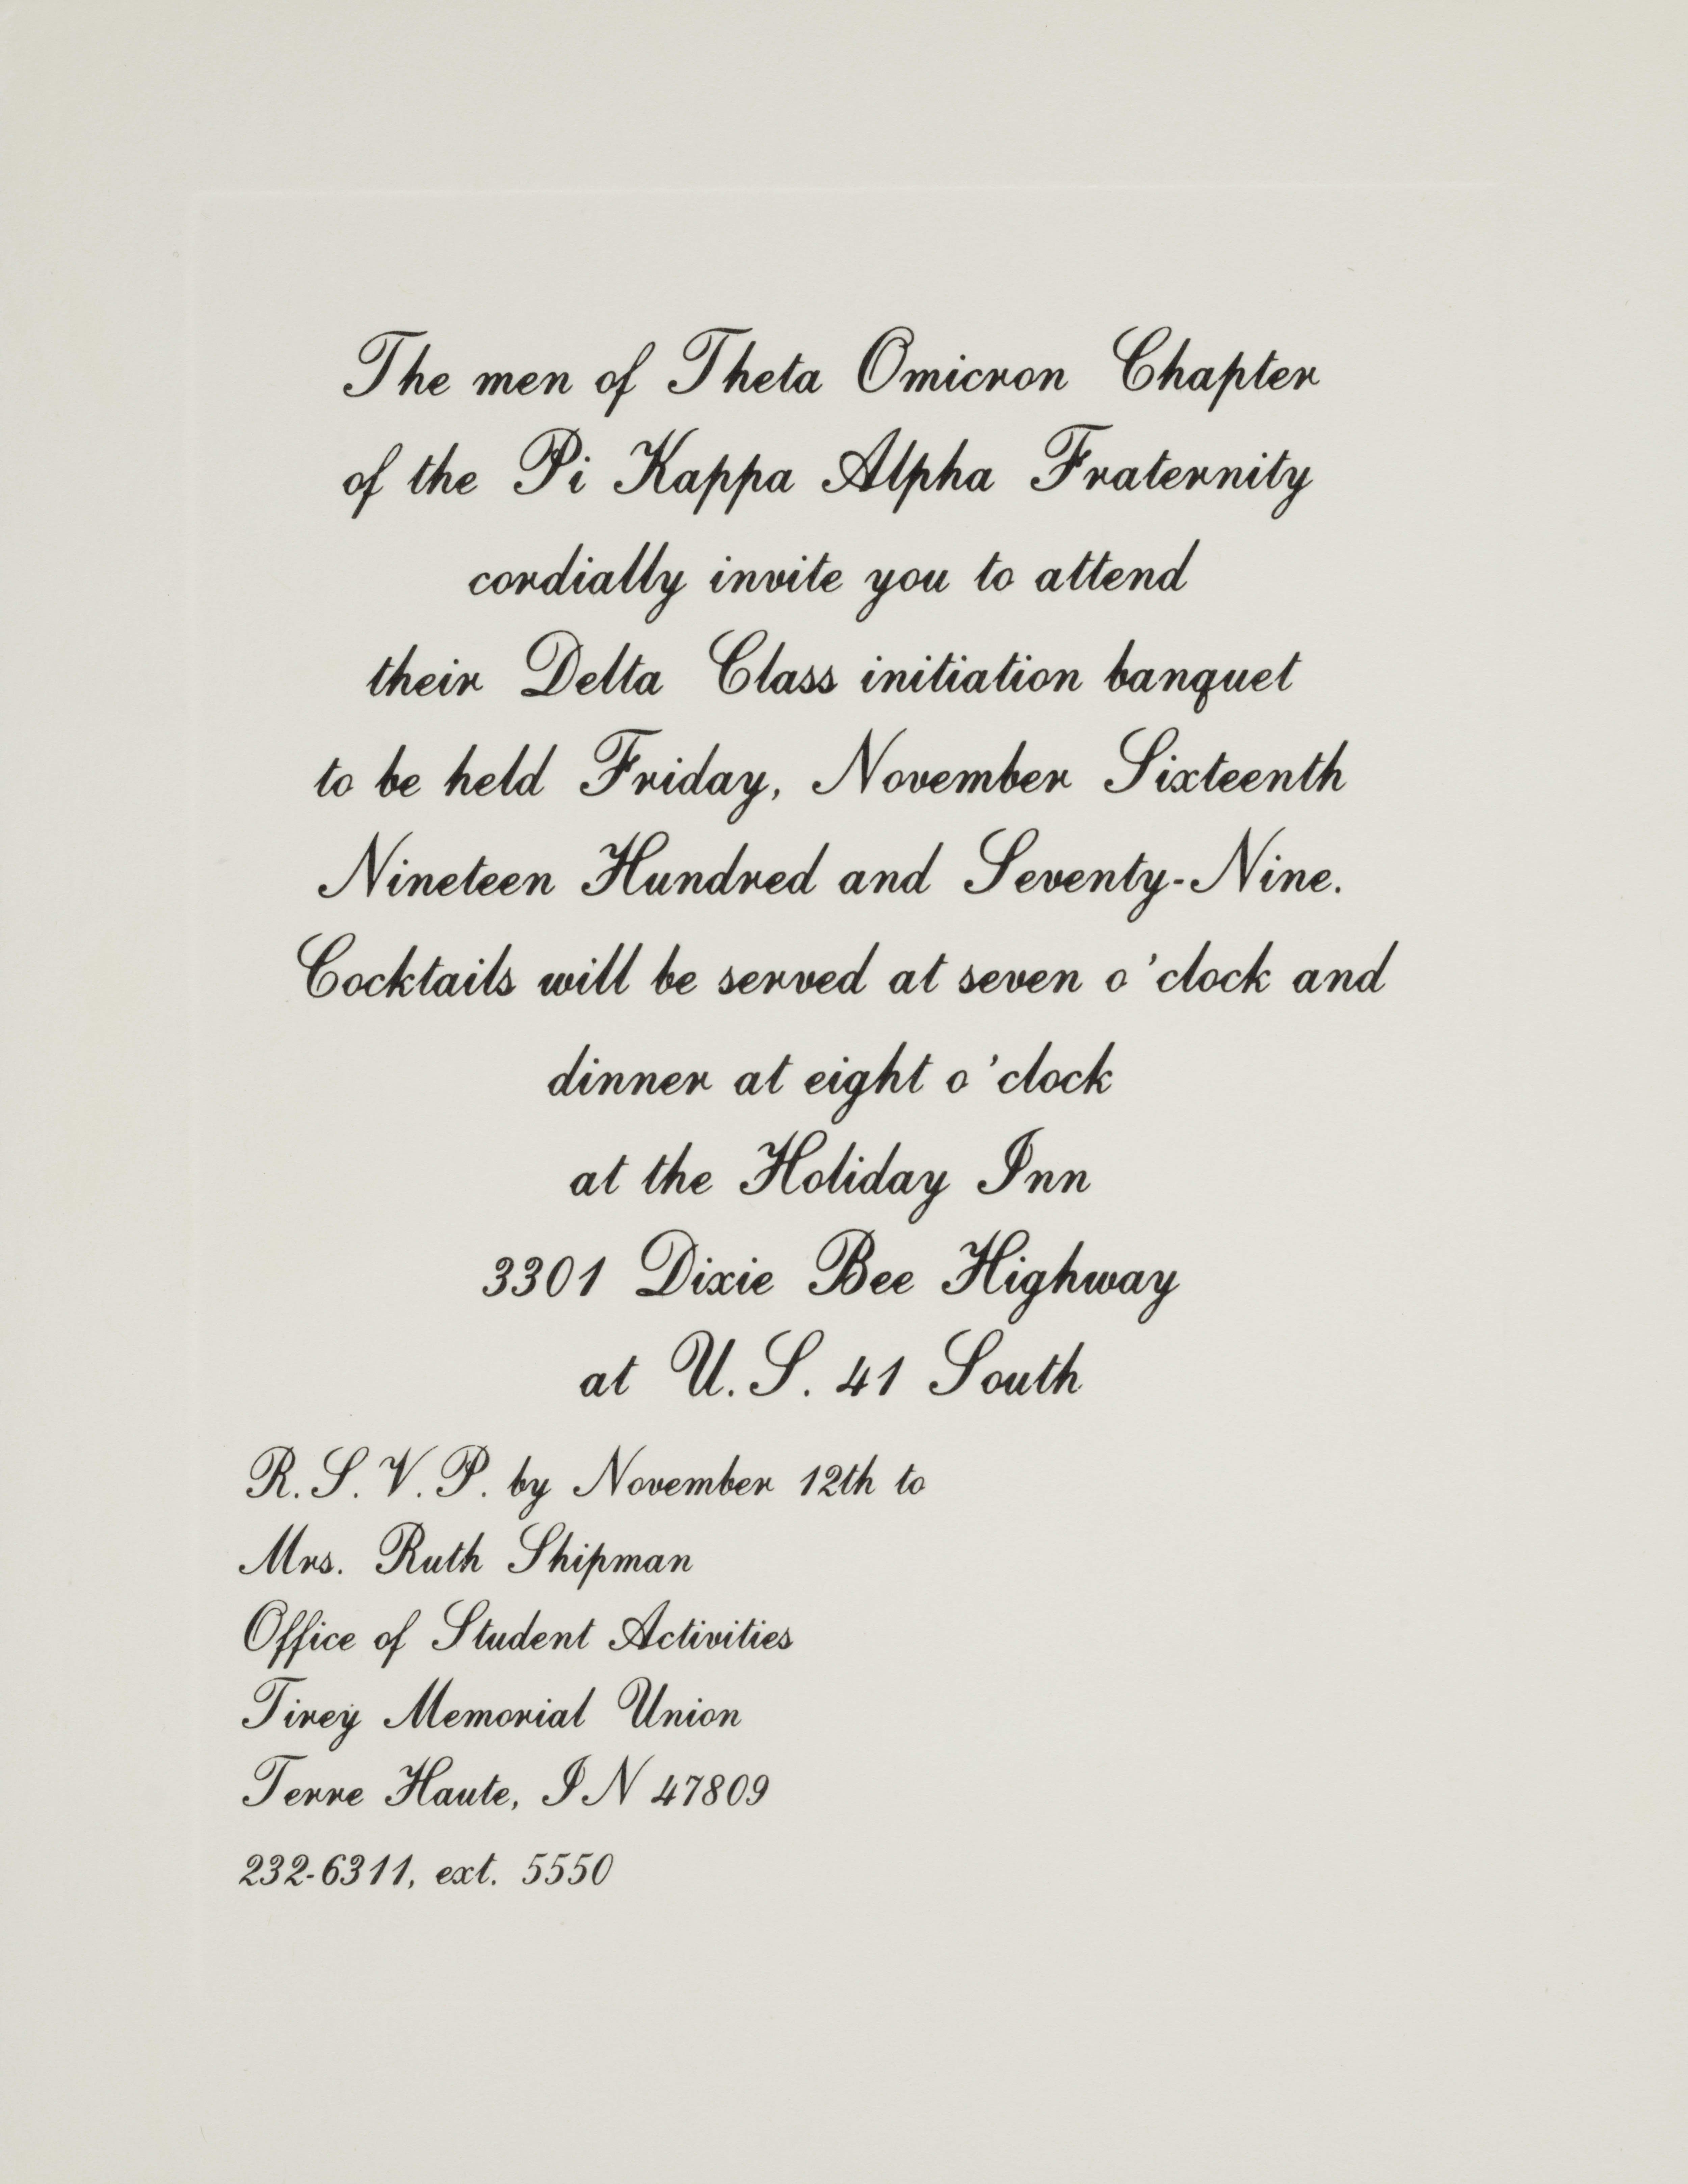 The men of Theta Omicron Chapter
of the Pi Kappa Alpha Fraternity
cordially invite you to attend
their Delta Class initiation banquet
to be held Friday, November Sixteenth
Nineteen Hundred and Seventy-Nine.
Cocktails will be served at seven o'clock and
dinner at eight o'clock
at the Holiday Inn
3301 Dixie Bee Highway
at U.S. 41 South
R.S.V.P. by November 12th to
Mrs. Ruth Shipman
Office of Student Activities
Tirey Memorial Union
Terre Haute, IN 47809
232-6311, ext. 5550